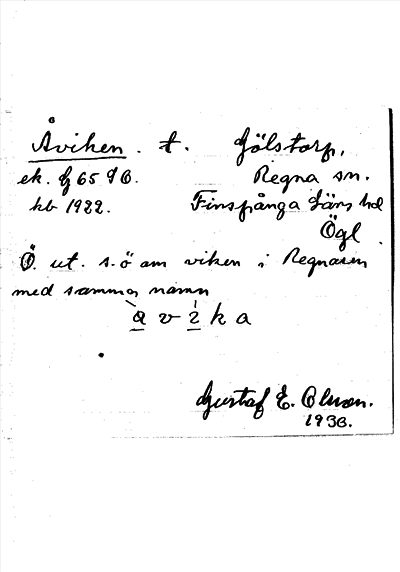 Åviken. t. Gölstorp,
ek. G 65 9 B. Regna sn.
kb 1922. Finspånga läns hd
Ögl.
Ö. ut. s.ö am viken i Regnaren
med samma namn
a v i k a
Gustaf E. Olsson.
1936.